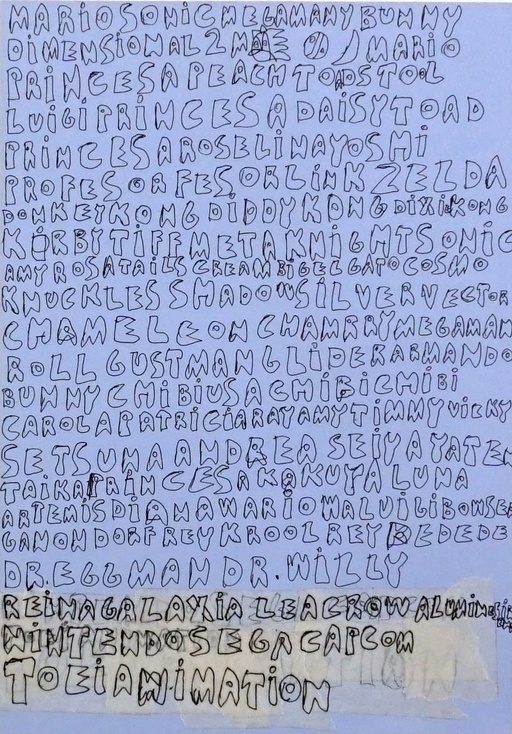 MARIOSONICMEGAMANYBUNNY
DIMENSIONAL2M MARIO
PRINCESAPEACHTOADSTOOL
LUIGIPRINCESADAISYTOAD
PRINCESAROSELINAYOSHI
PROFESORFESORLINKZELDA
DONKEYKONGDIDDYKONGDIXIEKONG
KIRBYTIFFMETAKNIGHTSONIC
AMYROSATAILSCREAMBIGELGATOCOSMO
KNUCKLESSHADOWSILVERVECTOR
CHAMELEONCHAMRAYMEGAMAN
ROLLGUSTMANGLIDERARMANDO
BUNNYCHIBIUSACHIBICHIBI
CAROLAPATRICIARAYAMYTIMMYVICKY
SETSUNAANDREASEIYAYATEN
TAIKAPRINCESAKAKUYALUNA
ARTEMISDIANAWARIOWALUIGIBOWSER
GANONDORFREYKROOLREYDEDEDE
DR.EGGMANDR.WILLY
REINAGALAXIALEACROWALUMINE
NINTENDOSEGACAPCOM
TOEIANIMATION